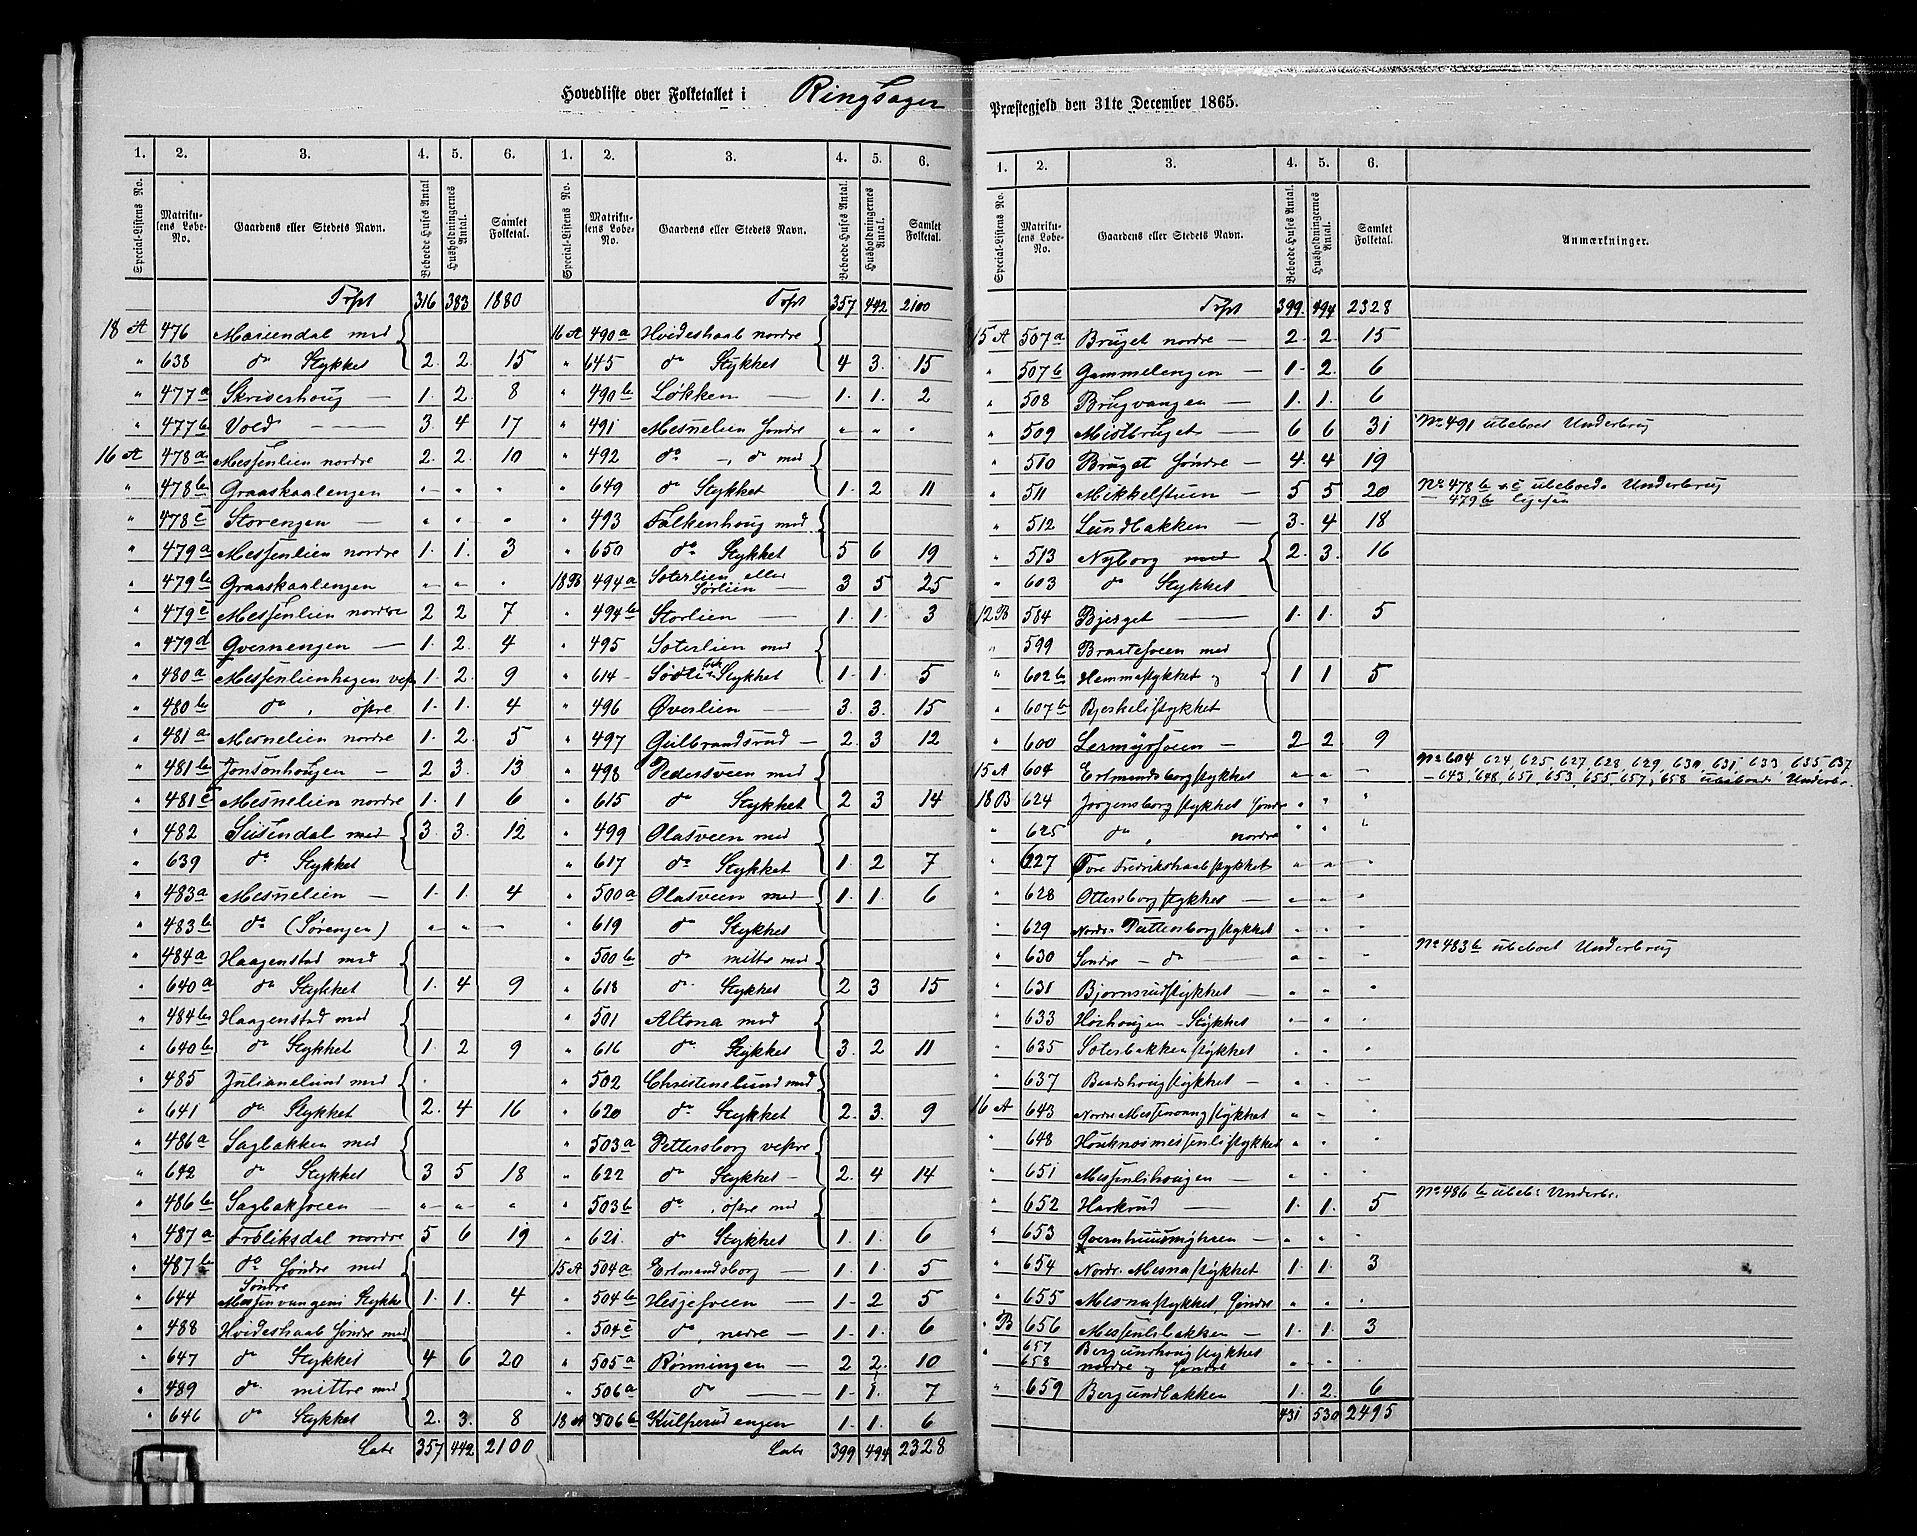 Hovedliste over Folketallet i Ringsager Præstegjeld den 31te December 1865.
1. 2. 3. 4. 5. 6. 1. 2. 3. 4. 5. 6.
Special-Listens No. Matrikulens Løbe-No. Gaardens eller Stedets Navn. Beboede Huses Antal Husholdningernes Antal. Samlet Folketal. Special-Listens No. Matrikulens Løbe-No. Gaardens eller Stedets Navn. Beboede Huses Antal. Husholdningernes Antal. Samlet Folketal.
Trpt 316 383 1880 Trpt 357 442 2100
18 A 476 Mariendal med 16 A 490a Hvideskaab nordre
" 638 do Stykket 2. 2. 15 " 645 do Stykket 4 3. 15
" 477a Skriverhoug — 1. 2. 8 " 490b Løkken — 1. 1. 2
" 477b Vold — 3. 4 17 " 491 Mesnelien søndre " " "
16 A 478a Messenlien nordre 2. 2. 10 " 492 do —, do med
" 478b Graaskaalengen " " " " 649 do Stykket 1. 2 11
" 478c Storengen — " " " " 493 Falkenhoug med
" 479a Messenlien nordre 1. 1. 3 " 650 do Stykket 5 6 19
" 479b Graaskaalengen " " " 18B 494a Soterlien eller Sørlien — 3 5 25
" 479c Messenlien nordre 2 2 7 " 494b Storlien — 1. 1. 3
" 479d Qvernengen — 1. 2. 4 " 495 Soterlien med
" 480a Messenlienhagen vestre 1. 2 9 " 614 Stykket 1. 1. 5
" 480b do , østre 1. 1. 4 " 496 Øverlien — 3. 3. 15
" 481a Mesnelien nordre 1. 2. 5 " 497 Gulbrandsrud — 2. 3 12
" 481b Jonsonhougen — 2 3. 13 " 498 Pedersveen med
" 481c Mesnelien nordre 1. 1 6 " 615 do Stykket 2 3 14
" 482 Susendal med 3. 3. 12 " 499 Olasveen med
" 639 do Stykket " 617 do Stykket 1. 2 7
" 483a Mesnelien — 1. 1. 4 " 500a Olasveen med 1. 1. 6
" 483b do (Sørengen) " " — " 619 do Stykket
" 484a Haagenstad med " 500b do mittre med
" 640a do Stykket 1. 4 9 " 618 do Stykket 2 3 15
" 484b Haagenstad med " 501 Altona med
" 640b do Stykket 1. 2 9 " 616 do Stykket 3. 2 11
" 485 Julianelund med " 502 Christinelund med
" 641 do Stykket 2. 4 16 " 620 do Stykket 2. 3. 9
" 486a Sagbakken med " 503a Pettersborg vestre
" 642 do Stykket 3 5 18 " 622 do Stykket — 2. 4 14
" 486b Sagbaksveen — " " " " 503b do , østre med
" 487a Fröliksdal nordre 5 6 19 " 621 do Stykket 1. 1. 6
" 487b do søndre med 15 A 504a Ertmandsborg — 1. 1. 5
" 644 Søndre Messenvangens Stykke 1. 1. 4 " 504b Hesjesveen — 1. 2 5
" 488 Hvideskaab søndre med " 504c do , nedre — 1. 1. 6
" 647 do Stykket 4 6 20 " 505a Rønningen — 2 2. 10
" 489 do mittre med " 506a do — 1. 1. 7
" 646 do Stykket 2. 3. 8 18 A 506b Kulperudengen 1. 1. 6
Lats 357 442 2100 Lats 399 494 2328
1. 2. 3. 4. 5. 6.
Special-Listens No. Matrikulens Løbe-No. Gaardens eller Stedets Navn. Beboede Huses Antal. Husholdningernes Antal. Samlet Folketal. Anmærkninger.
Trpt 399 494 2328
15 A 507a Bruget nordre — 2. 2. 15
" 507b Gammelengen — 1. 2. 6
" 508 Brugvangen — 1. 1. 6
" 509 Midtbruget — 6 6 31 No 491 ubeboet Underbrug
" 510 Bruget søndre — 4. 4 19
" 511 Mikkelstuen — 5 5 20 No 478b & c ubeboede Underbrug
— 479b ligesaa
" 512 Lundbakken — 3. 4 18
" 513 Nyborg med 2. 3. 16
" 603 do Stykket
12 B 584 Bjerget — 1. 1. 5
" 599 Braatesveen med
" 602b Hemmastykket og 1 1 5
" 607b Bjerkelistykket
" 600 Lermyrsveen — 2 2. 9
15 A 604 Ertmandsborgstykket " " — No 604 624, 625, 627, 628, 629, 630, 631, 633, 635, 637,
18 B 624 Jørgensborgstykket søndre " " " — 643, 648, 651, 653, 655, 657, 658 ubeboede Underbr.
" 625 do , nordre " " "
" 627 Tore Fredrikshaabstykket " " "
" 628 Ottersborgstykket — " " "
" 629 Nordr. Puttersborgstykket " " "
" 630 Søndre — do — " " " No 483b ubeboet Underbrug
" 631 Bjørnsrudstykket — " " "
" 633 Hørhougen - Stykket " " "
" 635 Soterbakkenstykket " " "
" 637 Baadshougstykket — " " "
16 A 643 Nordre Messenvangstykket " " "
" 648 Houknosmessenlistykket " " "
" 651 Messenlihougen — " " "
" 652 Harkrud — 1. 1. 5 No 486b ubeb. Underbr.
" 653 Qvernhuusmyhren — " " "
" 654 Nordr. Mesnastykket 1. 1. 3
" 655 Mesnastykket, søndre " " "
" B 656 Messenlibakken — 1. 1. 3
" 657 658 Bergundhougstykket nordre og søndre " " "
" 659 Bergundbakken 1. 2. 6
431 530 2495